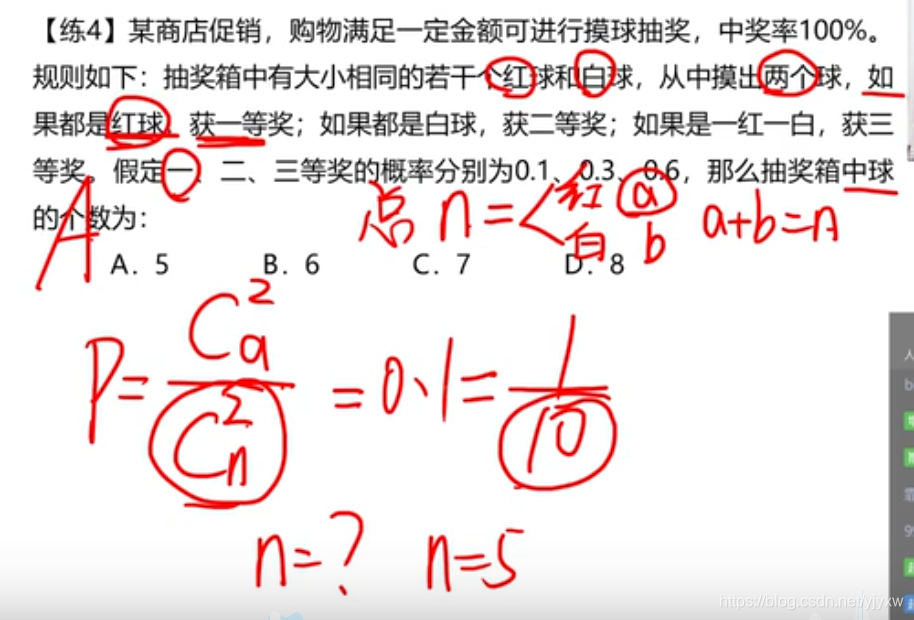 【练4】某商店促销，购物满足一定金额可进行摸球抽奖，中奖率100%。
规则如下：抽奖箱中有大小相同的若干个红球和白球，从中摸出两个球，如
果都是红球，获一等奖；如果都是白球，获二等奖；如果是一红一白，获三
等奖。假定一、二、三等奖的概率分别为0.1、0.3、0.6，那么抽奖箱中球
的个数为：
A
总 n = < 红 a 白 b a+b=n
A. 5 B. 6 C. 7 D. 8
P = C²ₐ / C²ₙ = 0.1 = 1/10
n=? n=5
https://blog.csdn.net/yjyxw